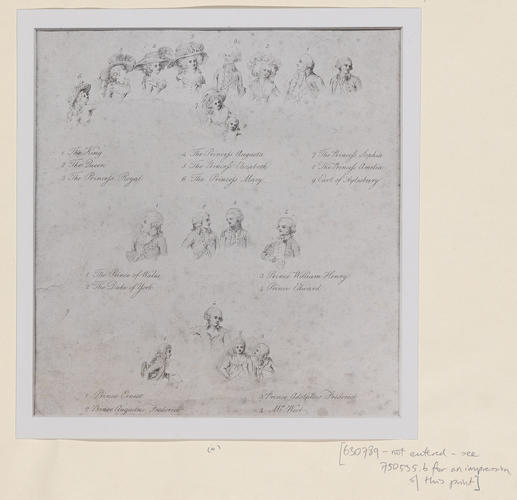 1 The King
2 The Queen
3 The Princess Royal
4 The Princess Augusta
5 The Princess Elizabeth
6 The Princess Mary
7 The Princess Sophia
8 The Princess Amelia
9 Earl of Aylesbury
1 The Prince of Wales
2 The Duke of York
3 Prince William Henry
4 Prince Edward
1 Prince Ernest
2 Prince Augustus Frederick
3 Prince Adolphus Frederick
4 Mr. West
[630789 - not entered - see
750535.b for an impression
of this print]